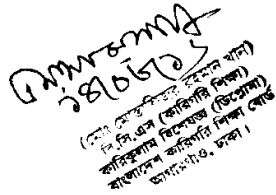 ১৪/০৮/১৬
(মোঃ মোস্তাফিজুর রহমান খান)
বি,সি,এস (কারিগরি শিক্ষা)
কারিকুলাম বিশেষজ্ঞ (ডিপ্লোমা)
বাংলাদেশ কারিগরি শিক্ষা বোর্ড
আগারগাঁও, ঢাকা।